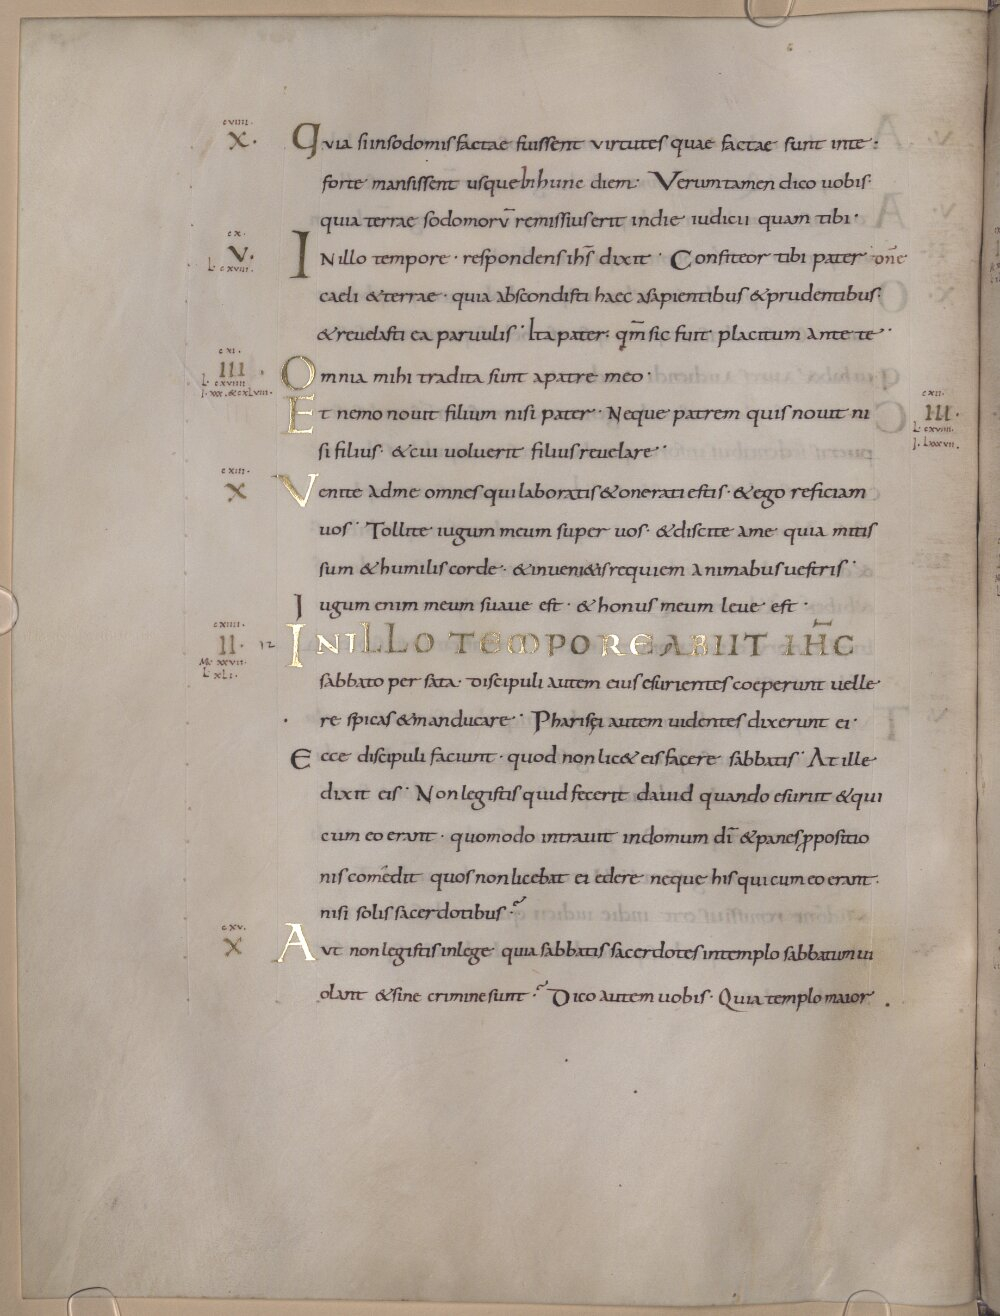 cviiii.
X.
Quia si insodomis factae fuissent virtutes quae factae sunt inte·
forte mansissent usque in hunc diem· Verumtamen dico uobis·
quia terrae sodomorū remissius erit indie iudicii quam tibi·
cx.
V.
L cxviii.
INillo tempore· respondens ihs̄ dixit· Confiteor tibi pater om̄e
caeli &terrae· quia abscondisti haec asapientibus &prudentibus·
&reuelasti ea paruulis· Ita pater· qm̄ sic fuit placitum ante te·
cxi.
III.
L cxviiii
Omnia mihi tradita sunt apatre meo·
cxii.
III.
L cxviiii.
J. Lxxxvii.
Et nemo nouit filium nisi pater· Neque patrem quis nouit ni
si filius· &cui uoluerit filius reuelare·
cxiii.
X
Venite adme omnes qui laboratis &onerati estis· &ego reficiam
uos· Tollite iugum meum super uos· &discite ame quia mitis
sum &humilis corde· &inueni&is requiem animabus uestris·
Iugum enim meum suaue est· &honus meum leue est·
cxiiii.
II.
Mc xxvii.
L xLi.
12
IN ILLO TEMPORE ABIIT IHC̄
sabbato per sata· Discipuli autem eius esurientes coeperunt uelle
re spicas &manducare· Pharisęi autem uidentes dixerunt ei·
Ecce discipuli faciunt· quod non lic& eis facere sabbatis· At ille
dixit eis· Non legistis quid fecerit dauid quando esuriit &qui
cum eo erant· quomodo intrauit indomum dī &panes ppositio
nis com̄edit quos non licebat ei edere neque his qui cum eo erant·
nisi solis sacerdotibus·
cxv.
X
Aut non legistis inlege quia sabbatis sacerdotes intemplo sabbatum ui
olant &sine crimine sunt· Dico autem uobis· Quia templo maior